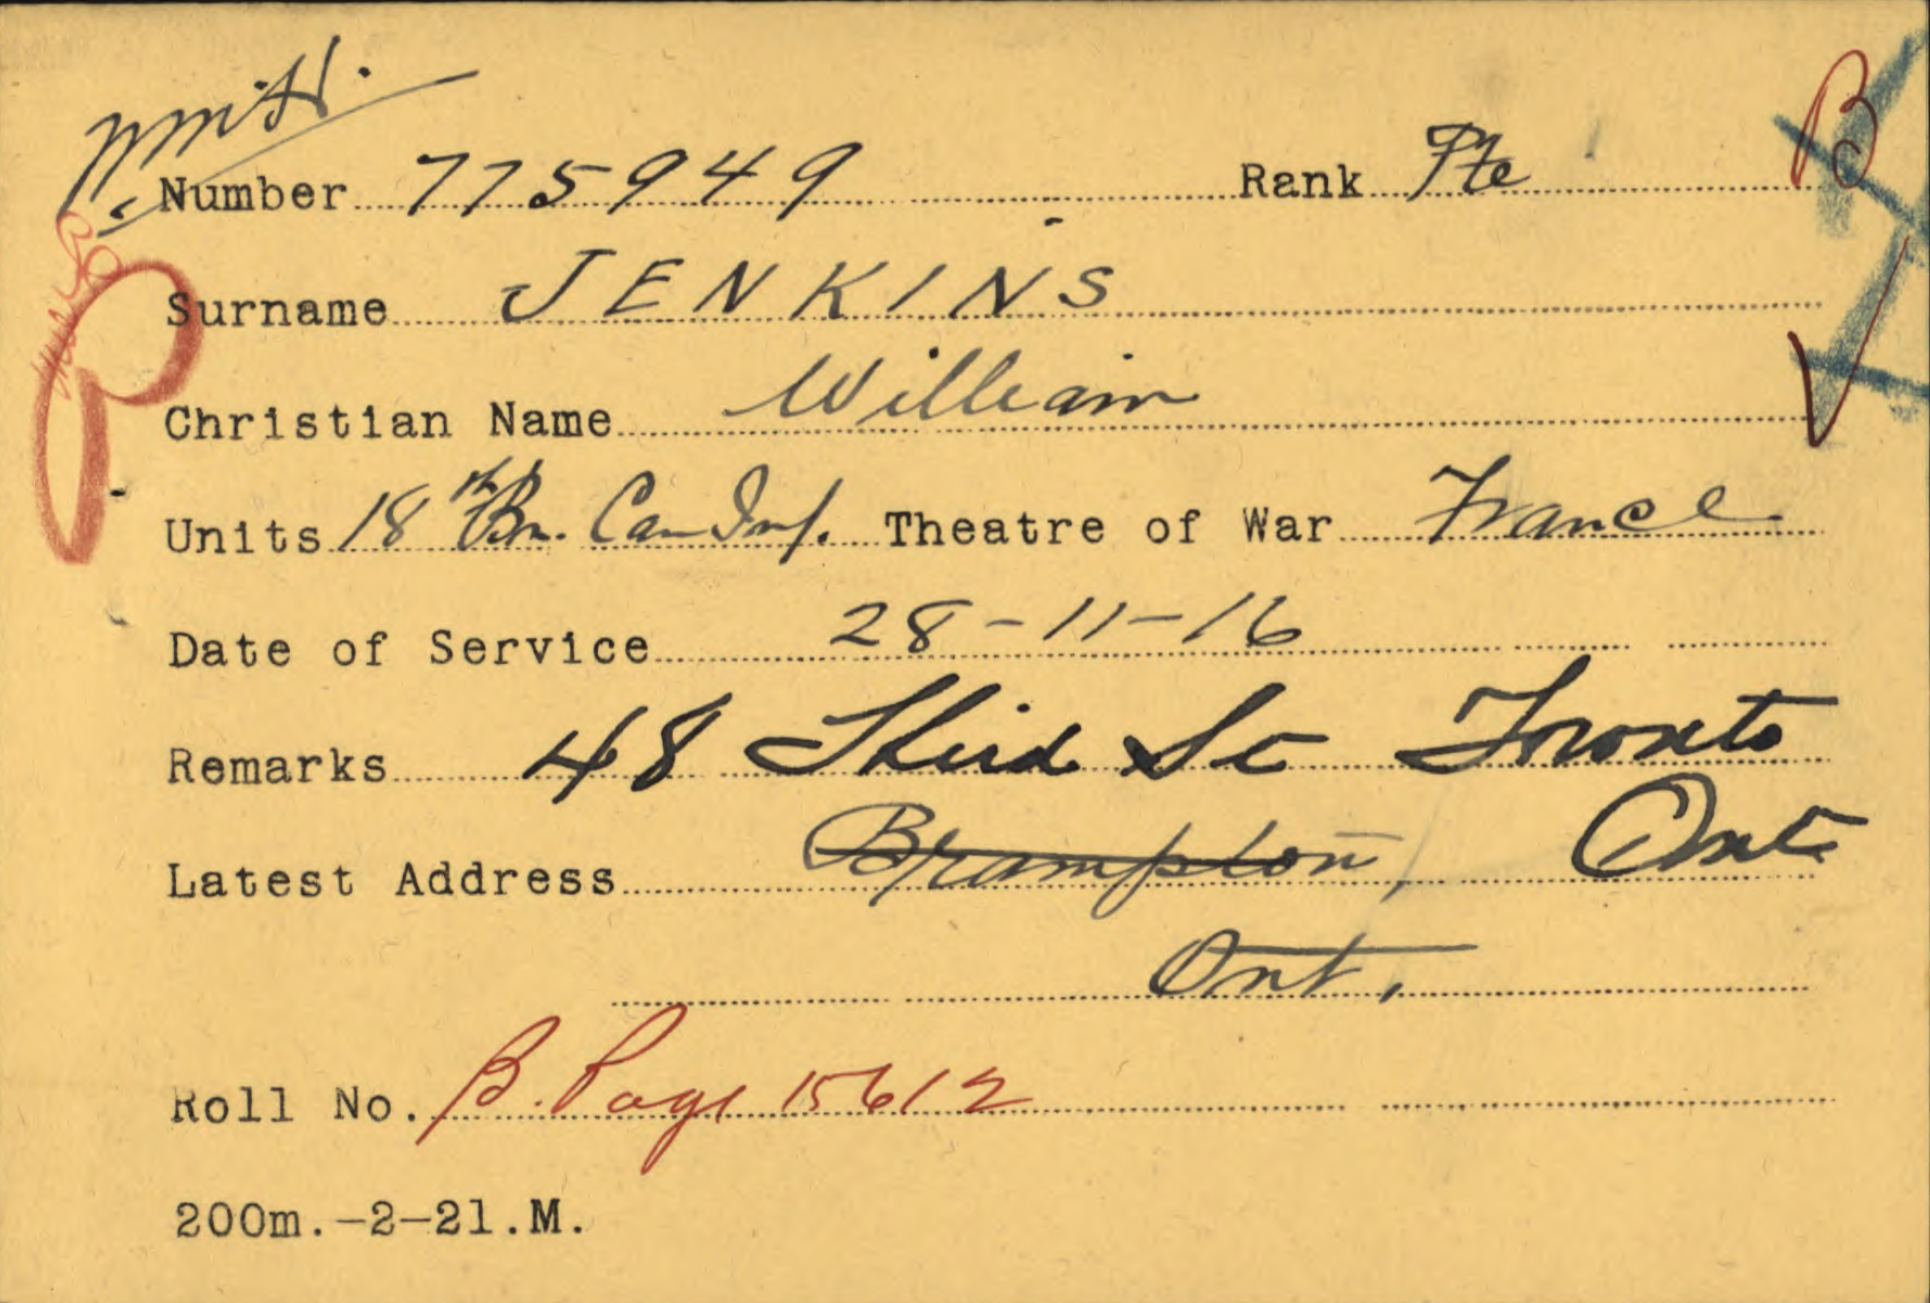 Number 775949 Rank Pte B
Surname JENKINS
Christian Name William
Units 18th Bn. Can Inf. Theatre of War France
Date of Service 28-11-16
Remarks 48 Third St Toronto
Latest Address Brampton, Ont
Ont.
Roll No. B. Page 15612
200m.-2-21.M.